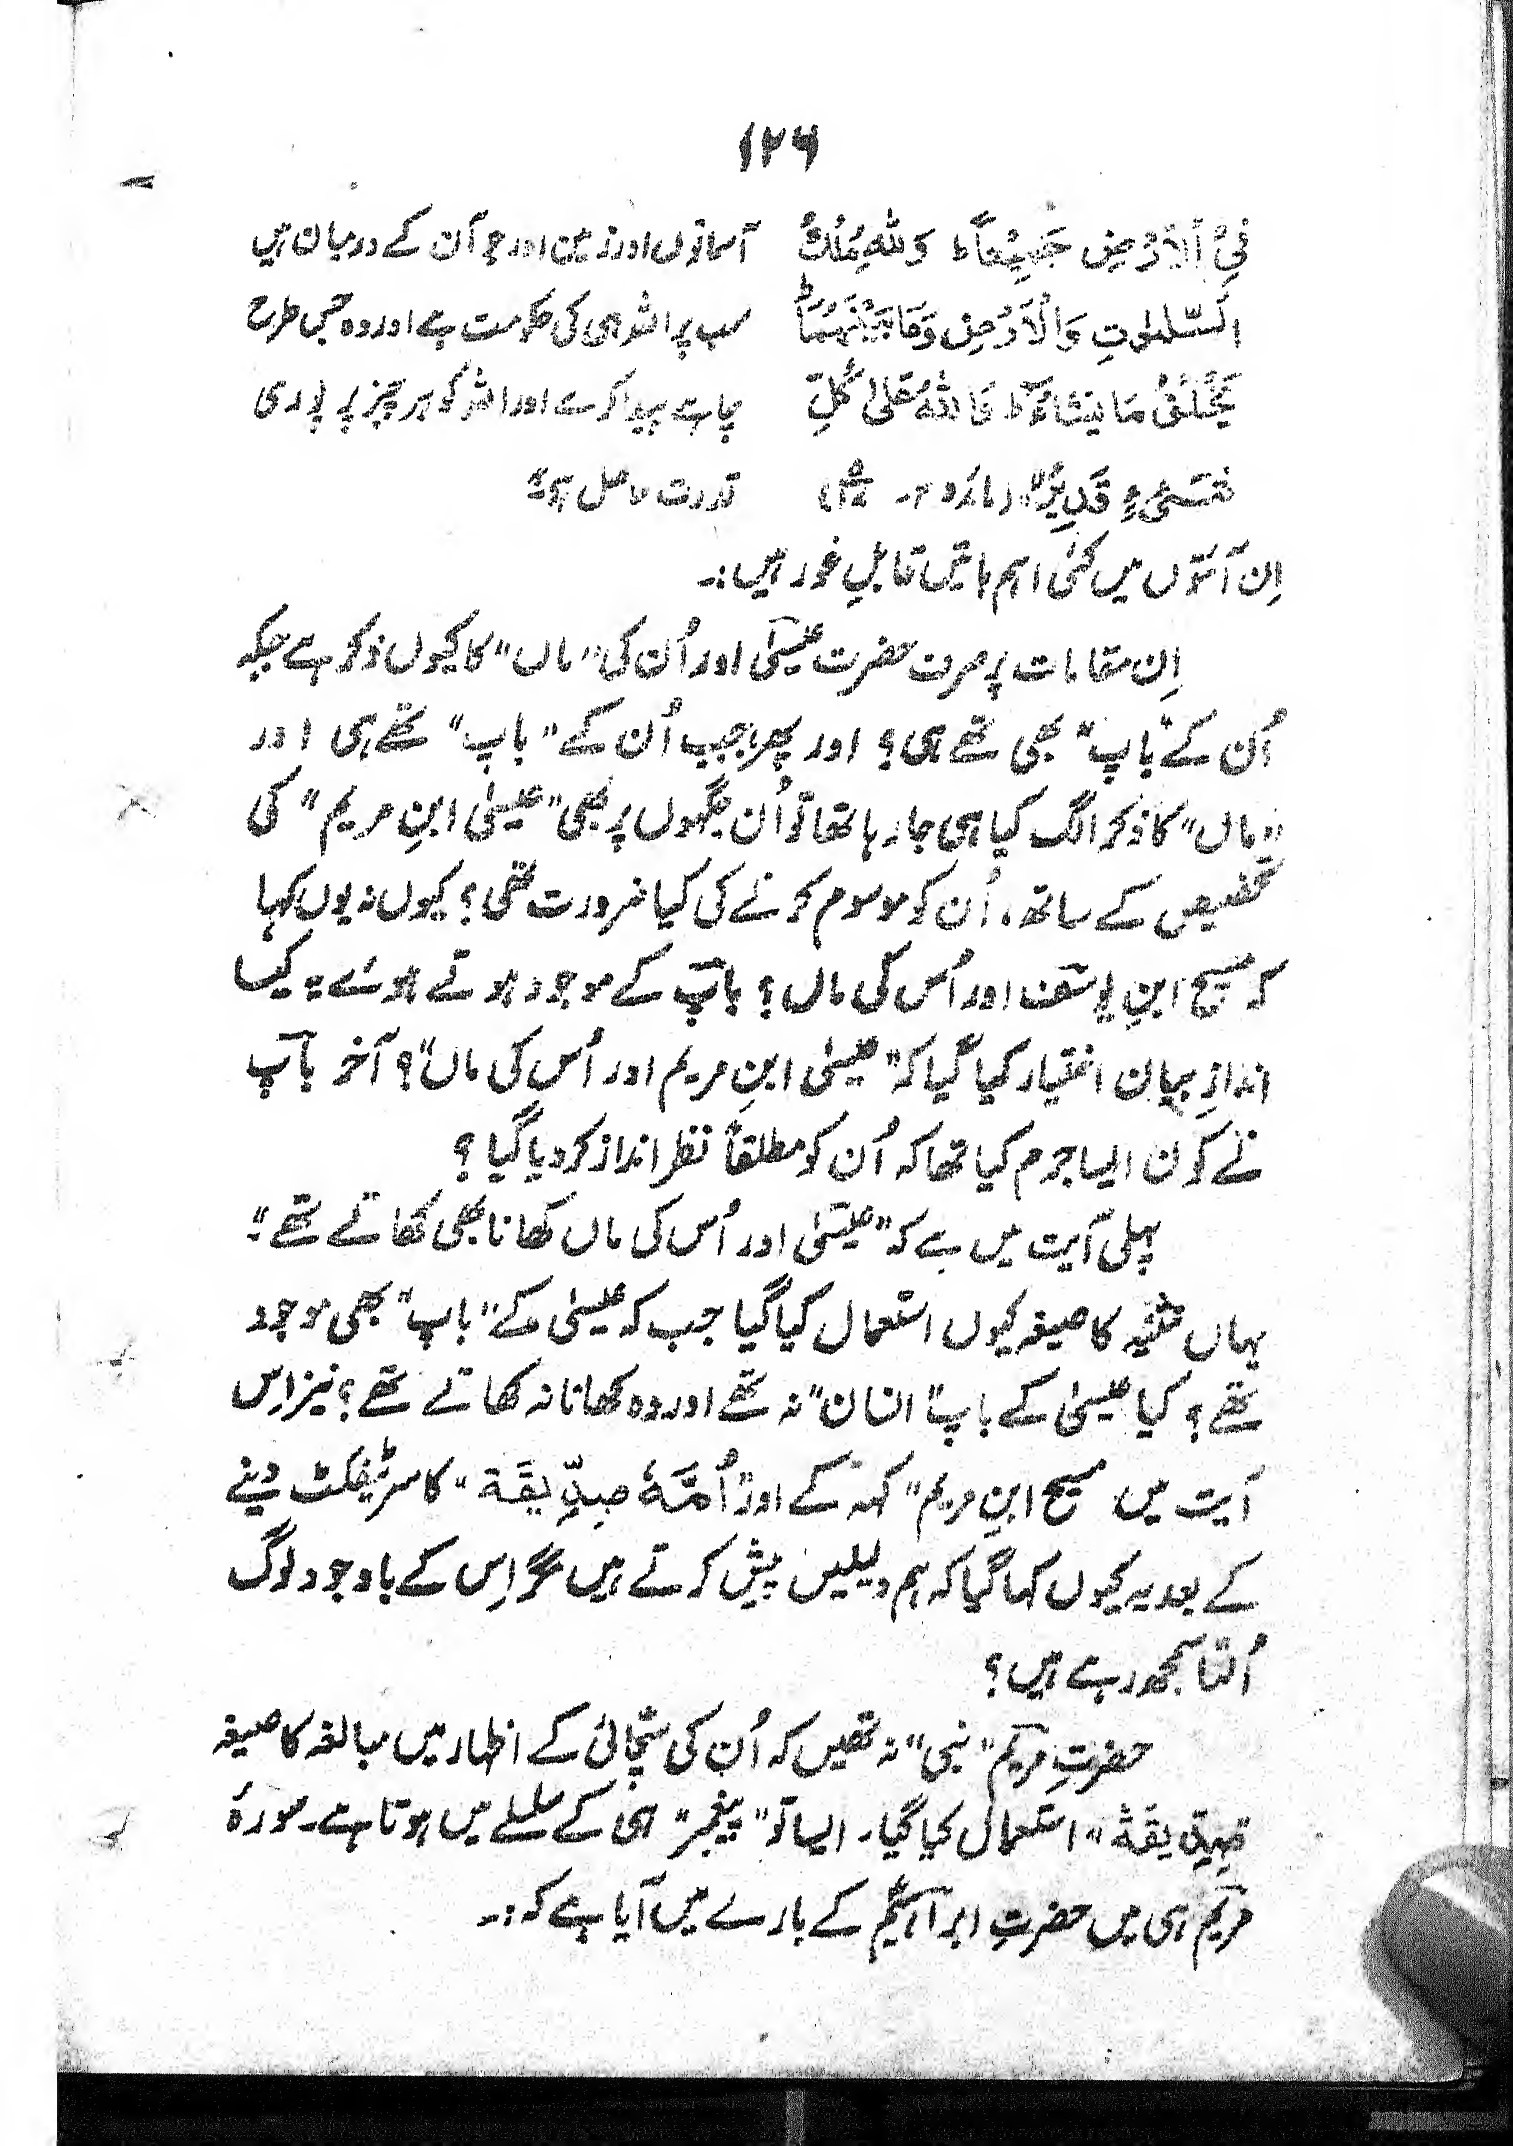 ۱۲۶
فِی الْاَرْضِ جَمِیْعًا ؕ وَلِلّٰہِ مُلْکُ آسمانوں اور زمین اور جو اُن کے درمیان ہیں
السَّمٰوٰتِ وَالْاَرْضِ وَمَا بَیْنَہُمَا ؕ سب پر اللہ ہی کی حکومت ہے اور وہ جس طرح
یَخْلُقُ مَا یَشَآءُ ؕ وَاللّٰہُ عَلٰی کُلِّ چاہے پیدا کرے اور اللہ کو ہر چیز پر پوری
شَیْءٍ قَدِیْرٌ (مائدہ قدرت حاصل ہے"
اِن آیتوں میں کئی اہم باتیں قابلِ غور ہیں:۔
اِن مقامات پر صرف حضرت عیسیٰؑ اور اُن کی "ماں" کا کیوں ذکر ہے جبکہ
اُن کے "باپ" بھی تھے ہی؟ اور پھر جب اُن کے "باپ" تھے ہی اور
"ماں" کا ذکر الگ کیا ہی جا رہا تھا تو اُن جگہوں پر بھی "عیسیٰ ابنِ مریم" کی
تخصیص کے ساتھ، اُن کو موسوم کرنے کی کیا ضرورت تھی؟ کیوں نہ یوں کہا
کہ مسیح ابنِ یوسف اور اُس کی ماں؟ باپ کے موجود ہوتے ہوئے یہ کیسا
اندازِ بیان اختیار کیا گیا کہ "عیسیٰ ابنِ مریم اور اُس کی ماں"؟ آخر باپ
نے کون ایسا جرم کیا تھا کہ اُن کو مطلقاً نظر انداز کر دیا گیا؟
پہلی آیت میں ہے کہ "عیسیٰ اور اُس کی ماں کھانا بھی کھاتے تھے"۔
یہاں تثنیہ کا صیغہ کیوں استعمال کیا گیا جب کہ عیسیٰ کے "باپ" بھی موجود
تھے؟ کیا عیسیٰ کے باپ "انسان" نہ تھے اور وہ کھانا نہ کھاتے تھے؟ نیز اِس
آیت میں مسیح ابنِ مریم" کہہ کے اور "اُمَّہٗ صِدِّیْقَۃ" کا سرٹیفکٹ دینے
کے بعد یہ کیوں کہا گیا کہ ہم دلیلیں پیش کرتے ہیں مگر اِس کے باوجود لوگ
اُلٹا سمجھ رہے ہیں؟
حضرتِ مریم "نبی" نہ تھیں کہ اُن کی سچّائی کے اظہار میں مبالغہ کا صیغہ
صِدِّیقَۃ" استعمال کیا گیا۔ ایسا تو "پیغمبر" ہی کے سلسلے میں ہوتا ہے۔ سورۂ
مریم ہی میں حضرتِ ابراہیمؑ کے بارے میں آیا ہے کہ:۔